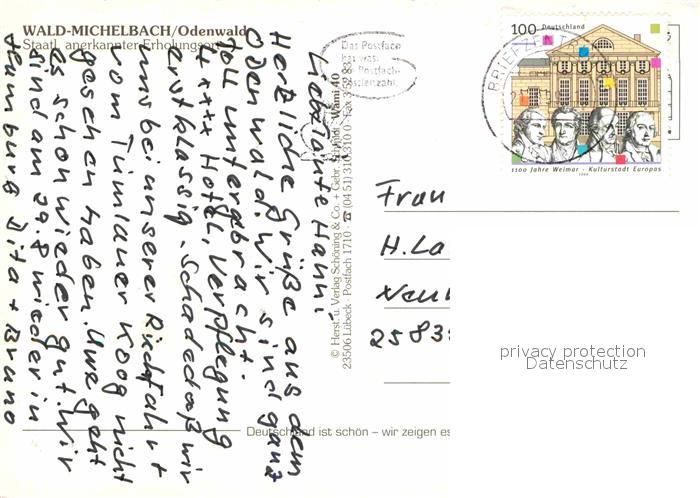 WALD-MICHELBACH/Odenwald
Staatl. anerkannter Erholungsort
Liebe Tante Hanni,
Herzliche Grüße aus dem
Odenwald. Wir sind ganz
toll untergebracht.
4 **** Hotel, Verpflegung
erstklassig. Schade daß wir
uns bei unserer Rückfahrt
vom Tümlauer Koog nicht
gesehen haben. Uwe geht
es schon wieder gut. Wir
sind am 29.8 wieder in
Hamburg Dita + Bruno
© Herst. u. Verlag Schöning & Co. + Gebr. Schmidt
23506 Lübeck · Postfach 1710 · ☎ (04 51) 310 310 0
Das Postfach
Postfach-
100 Deutschland
1100 Jahre Weimar - Kulturstadt Europas
1999
BRIEFZE
Frau
H. La
Neu
2583
Deutschland ist schön – wir zeigen es
privacy protection
Datenschutz